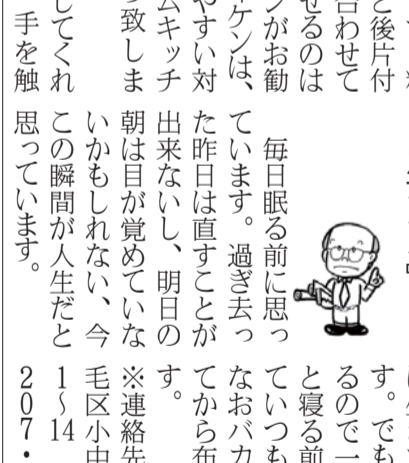 と後片付
合わせて
せるのは
ンがお勧
ケンは、
やすい対
ムキッチ
致しま
してくれ
手を触
毎日眠る前に思っ
ています。過ぎ去っ
た昨日は直すことが
出来ないし、明日の
朝は目が覚めていな
いかもしれない、今
この瞬間が人生だと
思っています。
す。でも
るので一
と寝る前
ていつも
なおバカ
てから布
す。
※連絡先
毛区小中
1〜14
207・